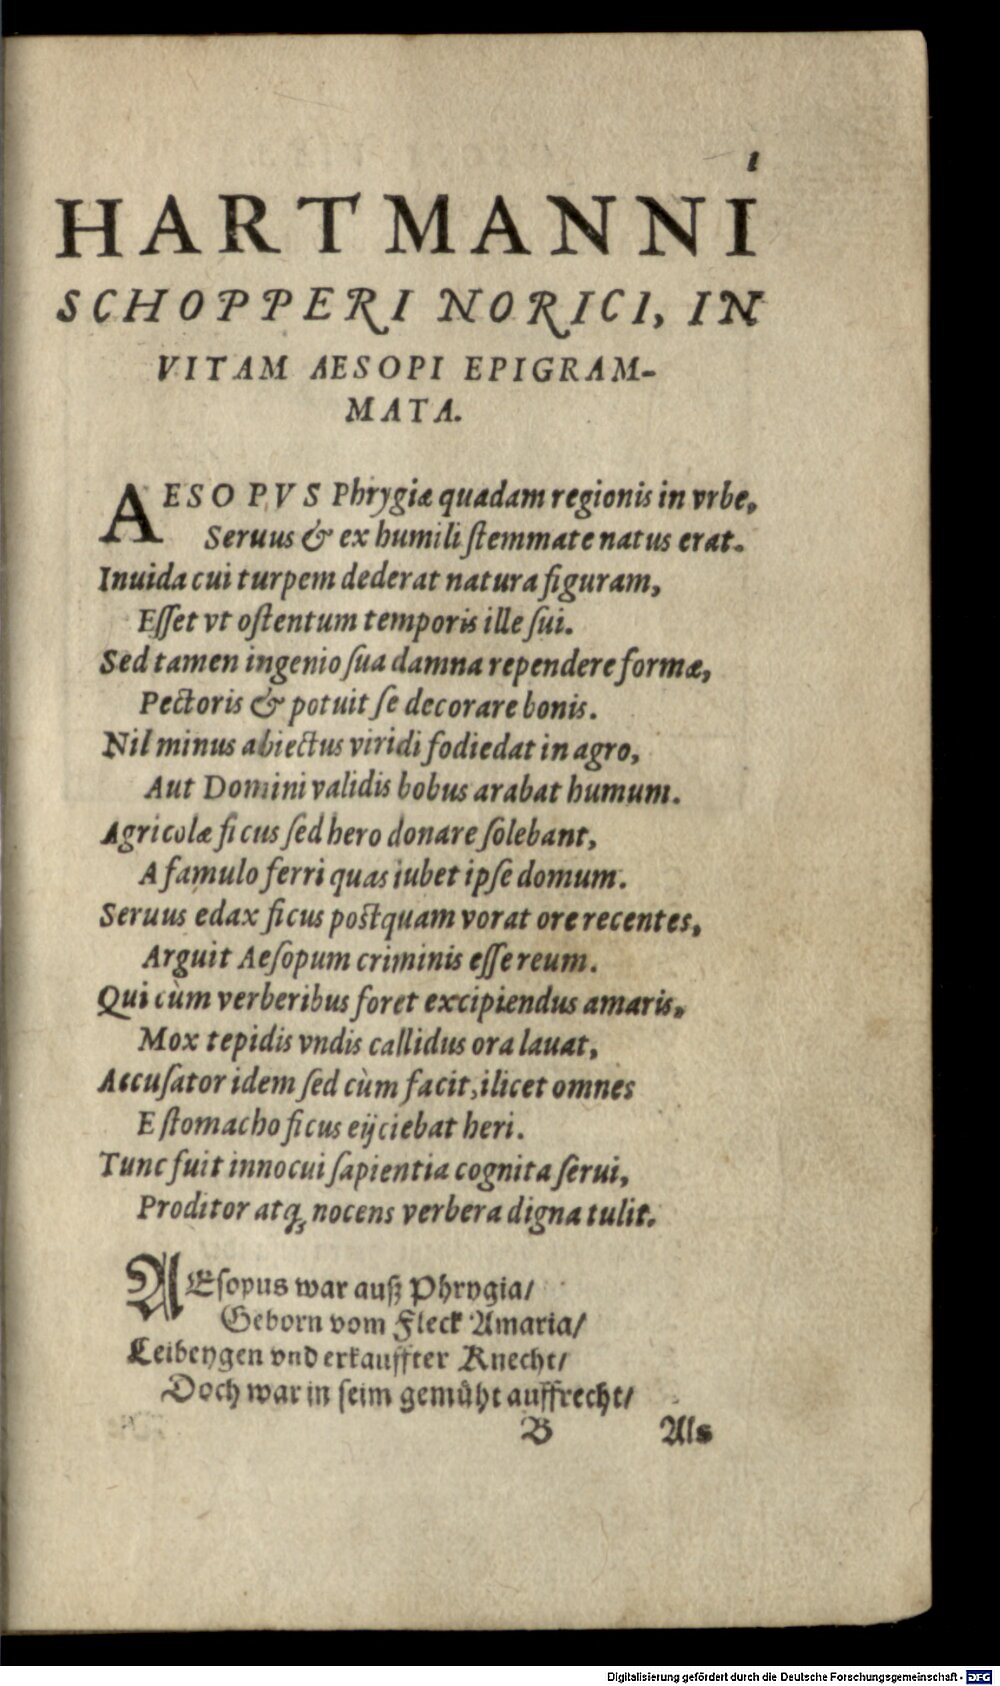 1
HARTMANNI
SCHOPPERI NORICI, IN
VITAM AESOPI EPIGRAM-
MATA.
AESOPVS Phrygiæ quadam regionis in vrbe,
Seruus & ex humili ſtemmate natus erat.
Inuida cui turpem dederat natura figuram,
Eſſet vt oſtentum temporis ille ſui.
Sed tamen ingenio ſua damna rependere formæ,
Pectoris & potuit ſe decorare bonis.
Nil minus abiectus viridi fodiedat in agro,
Aut Domini validis bobus arabat humum.
Agricolæ ficus ſed hero donare ſolebant,
A famulo ferri quas iubet ipſe domum.
Seruus edax ficus poſtquam vorat ore recentes,
Arguit Aeſopum criminis eſſe reum.
Qui cùm verberibus foret excipiendus amaris,
Mox tepidis vndis callidus ora lauat,
Accuſator idem ſed cùm facit, ilicet omnes
E ſtomacho ficus eijciebat heri.
Tunc fuit innocui ſapientia cognita ſerui,
Proditor atq; nocens verbera digna tulit.
AEſopus war auß Phrygia/
Geborn vom Fleck Amaria/
Leibeygen vnd erkauffter Knecht/
Doch war in ſeim gemüht auffrecht/
B Als
Digitalisierung gefördert durch die Deutsche Forschungsgemeinschaft - DFG